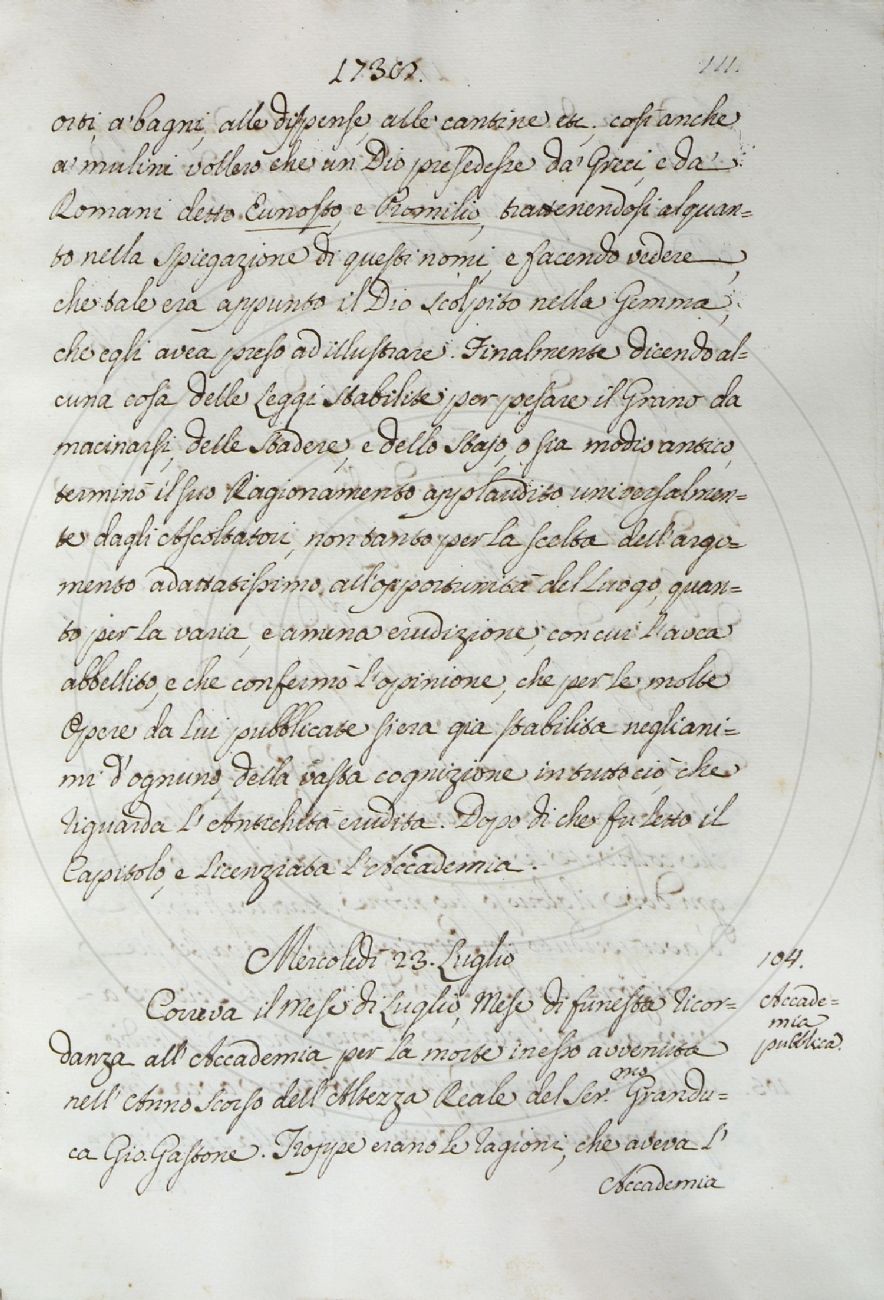 1738. 111.
orti, a' bagni, alle dispense, alle cantine etc. così anche
a' mulini vollero che un Dio presedesse da' Greci, e da'
Romani detto Eunosto, e Promilio, trattenendosi alquan=
to nella spiegazione di questi nomi, e facendo vedere,
che tale era appunto il Dio scolpito nella Gemma,
che egli avea preso ad illustrare. Finalmente dicendo al=
cuna cosa delle Leggi stabilite per pesare il Grano da
macinarsi, delle stadere, e dello stajo, o sia modio antico,
terminò il suo Ragionamento applaudito universalmen=
te dagli Ascoltatori, non tanto per la scelta dell'argo=
mento adattatissimo all'opportunità del Luogo, quan=
to per la varia, e amena erudizione, con cui l'avea
abbellito, e che confermò l'opinione, che per le molte
Opere da lui pubblicate si era già stabilita negli ani=
mi d'ognuno, della vasta cognizione in tutto ciò, che
riguarda l'Antichità erudita. Dopo di che fu letto il
Capitolo, e licenziata l'Accademia.
Mercoledì 23. Luglio
104.
Accade=
mia
pubblica.
Correva il mese di Luglio, Mese di funesta ricor=
danza all'Accademia per la morte in esso avvenuta
nell'Anno scorso dell'Altezza Reale del Ser.mo Grandu=
ca Gio. Gastone. Troppe erano le ragioni, che aveva l'
Accademia